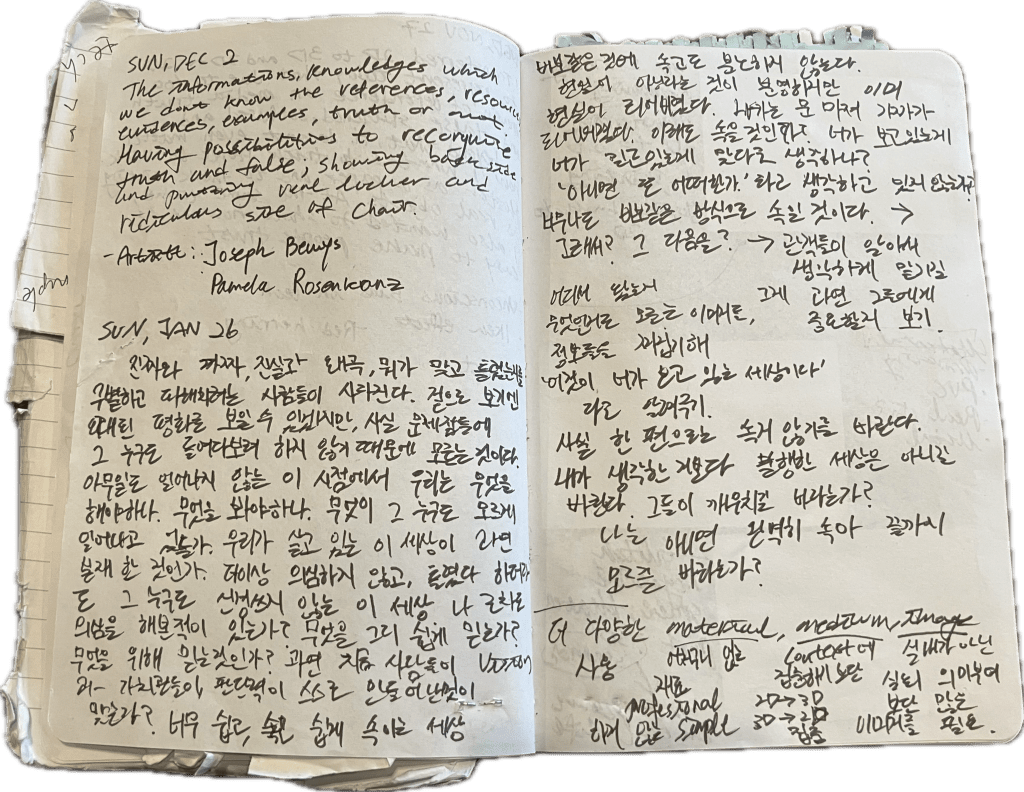 SUN, DEC 2
The informations, knowledges which
we dont know the references, resource
evidences, examples, truth or not.
Having possibilities to recognize
truth and false; showing backside
and putting real locker and
ridiculous size of chair.
- Artist : Joseph Beuys
Pamela Rosenkranz
SUN, JAN 26
진짜와 가짜, 진실과 왜곡, 뭐가 맞고 틀렸는지를
구별하고 파헤치려는 사람들이 사라진다. 겉으로 보기엔
평화를 보일 수 있겠지만, 사실 문제점들에
그 누구도 들여다보려 하지 않기 때문에 모르는 것이다.
아무일도 일어나지 않는 이 시점에서 우리는 무엇을
해야하나. 무엇을 봐야하나. 무엇이 그 누구도 모르게
일어나고 있을까. 우리가 살고 있는 이 세상이 과연
존재 한 것인가. 더이상 의심하지 않고, 틀렸다 하더라
도 그 누구도 신경쓰지 않는 이 세상 나 조차도
의심을 해본적이 있는가? 무엇을 그리 쉽게 믿는가?
무엇을 위해 믿는것인가? 과연 지금 사람들이
가치관들이, 판단력이 스스로 만들어낸것이
맞을까? 너무 쉽고, 쉽게 속이는 세상
바보같은 것에 속고도 분노하지 않는다.
현실이 아니라는 것이 분명하지만 이미
현실이 되어버렸다. 문 마저 가짜가
되어버렸다. 이래도 속을것인가? 너가 보고있는게
너가 믿고있는게 맞다고 생각하나?
'아니면 또 어떠한가.' 라고 생각하고 있지 않는가?
너무나도 바보같은 방식으로 속일 것이다. →
그래서? 그 다음은? → 관객들이 알아서
생각하게 맡기길
그게 과연 그들에게
중요할지 보기.
어디서 왔는지
무엇인지도 모르는 이미지들,
정보들을 짜집기해
'이것이 너가 보고 있는 세상이다'
라고 보여주기.
사실 한 편으로는 속지 않기를 바란다.
내가 생각한 것보다 불행한 세상은 아니길
바란다. 그들이 깨우치길 바라는가?
나는 아니면 완벽히 속아 끝까지
모르길 바라는가?
더 다양한 material, medium, Image
사용
재료
professional
하지 않은 simple
context에
집중해 보단
2D→3D
3D→2D
집중
실재가 아닌
실도 의미부여
보단 많은
이미지를 필요.